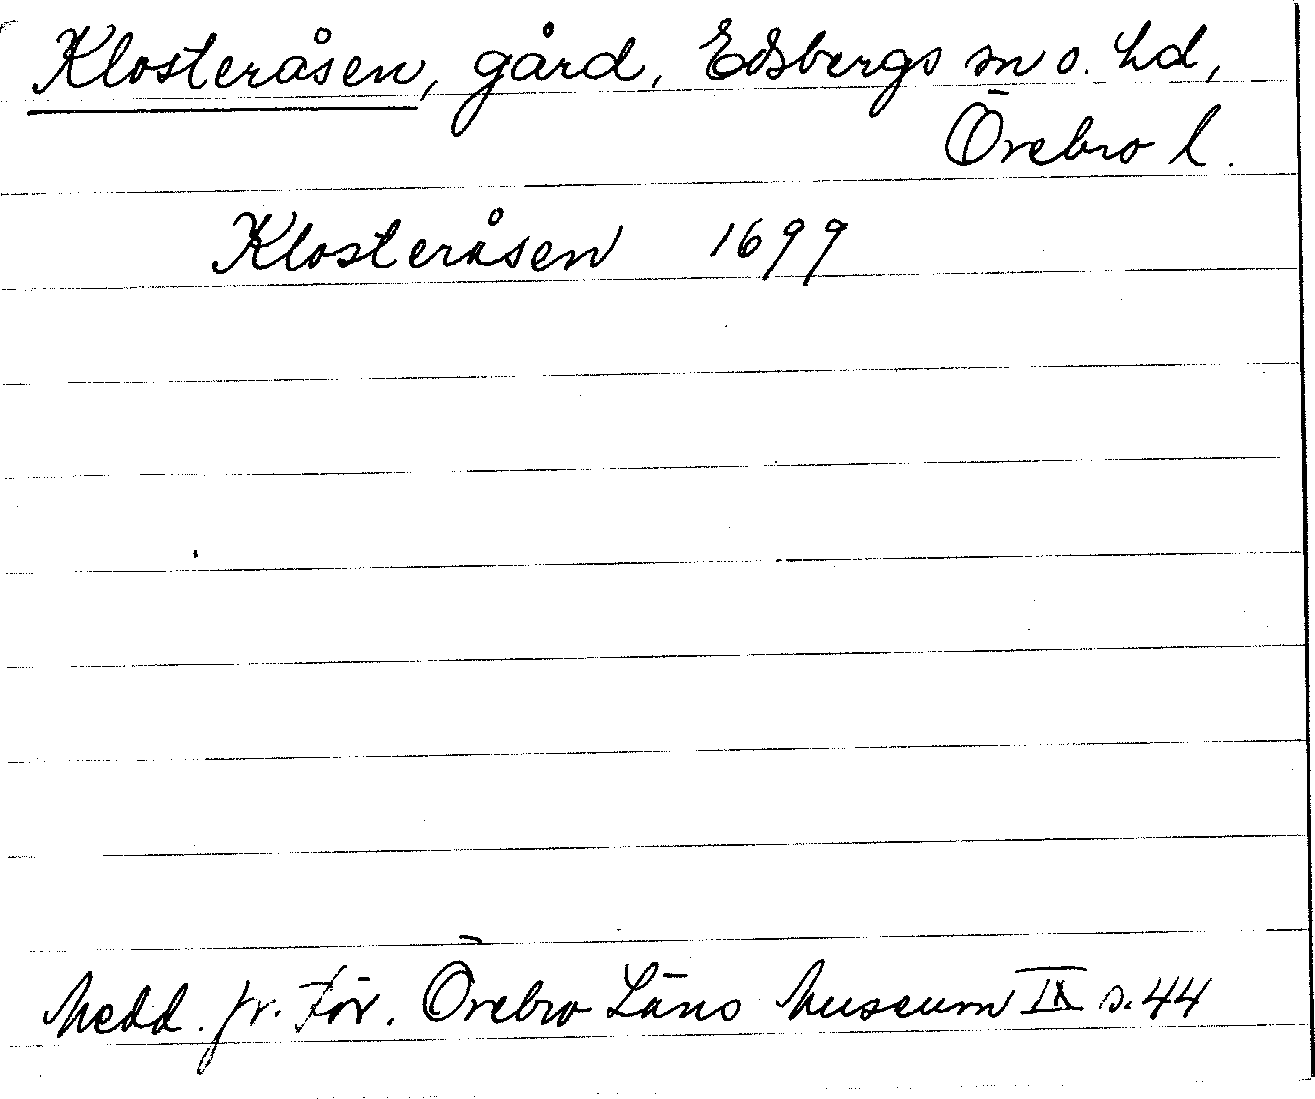 Klosteråsen, gård, Edsbergs sn o. hd,
Örebro l.
Klosteråsen 1699
Medd. fr. För. Örebro Läns Museum IX s. 44